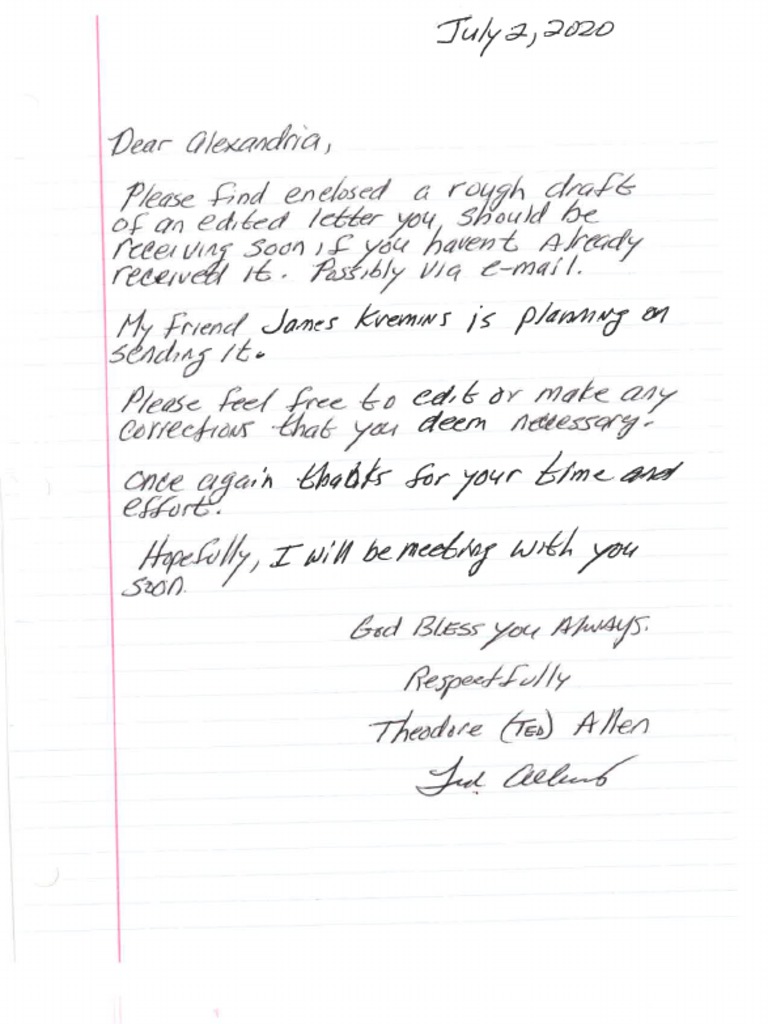 July 2, 2020
Dear Alexandria,
Please find enclosed a rough draft
of an edited letter you should be
receiving soon if you havent Already
received it. Possibly via e-mail.
My friend James Kremins is planning on
sending it.
Please feel free to edit or make any
corrections that you deem necessary.
once again thanks for your time and
effort.
Hopefully, I will be meeting with you
soon.
God BLESS you AlWAYS.
Respectfully
Theodore (TED) Allen
Ted Allen